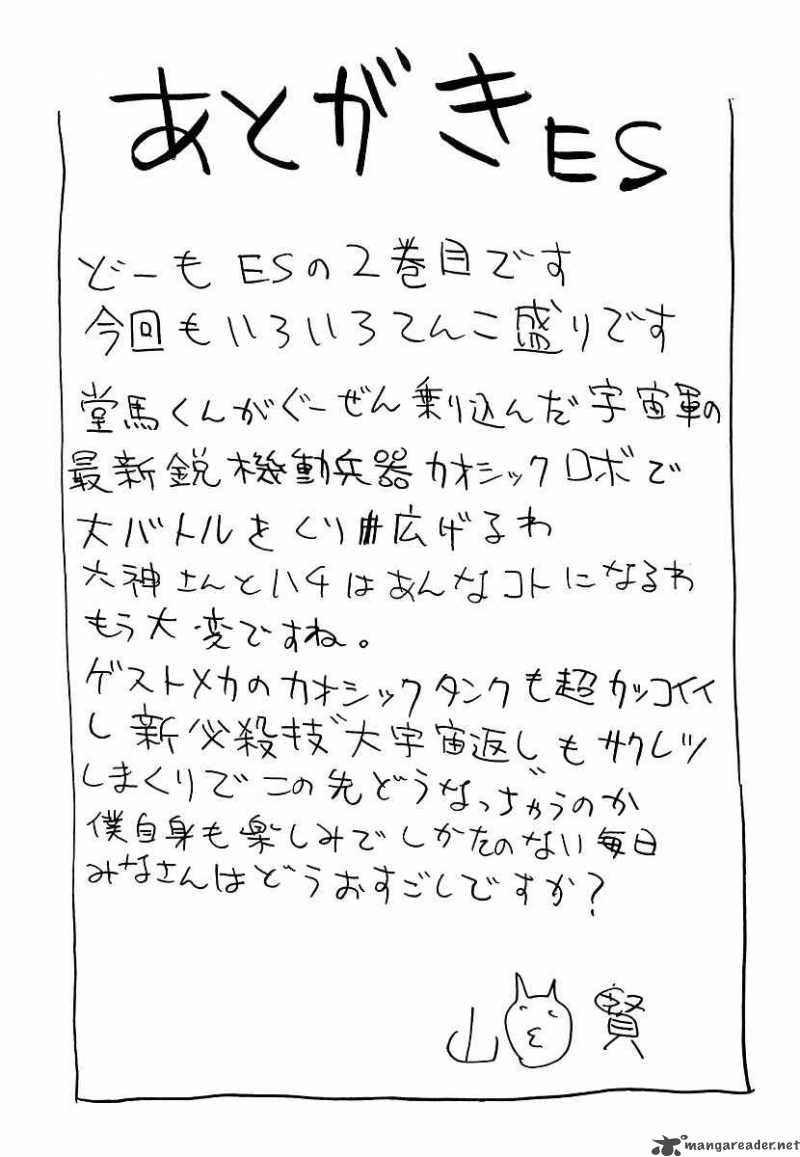 あとがきES
どーも ESの2巻目です
今回もいろいろてんこ盛りです
堂馬くんがぐーぜん乗り込んだ宇宙軍の
最新鋭機動兵器カオシックロボで
大バトルをくり広げるわ
六神さんとハチはあんなコトになるわ
もう大変ですね。
ゲストメカのカオシックタンクも超カッコイイ
し新必殺技大宇宙返しもサクレツ
しまくりでこの先どうなっぢゃうのか
僕自身も楽しみでしかたのない毎日
みなさんはどうおすごしですか?
山 賢
mangareader.net